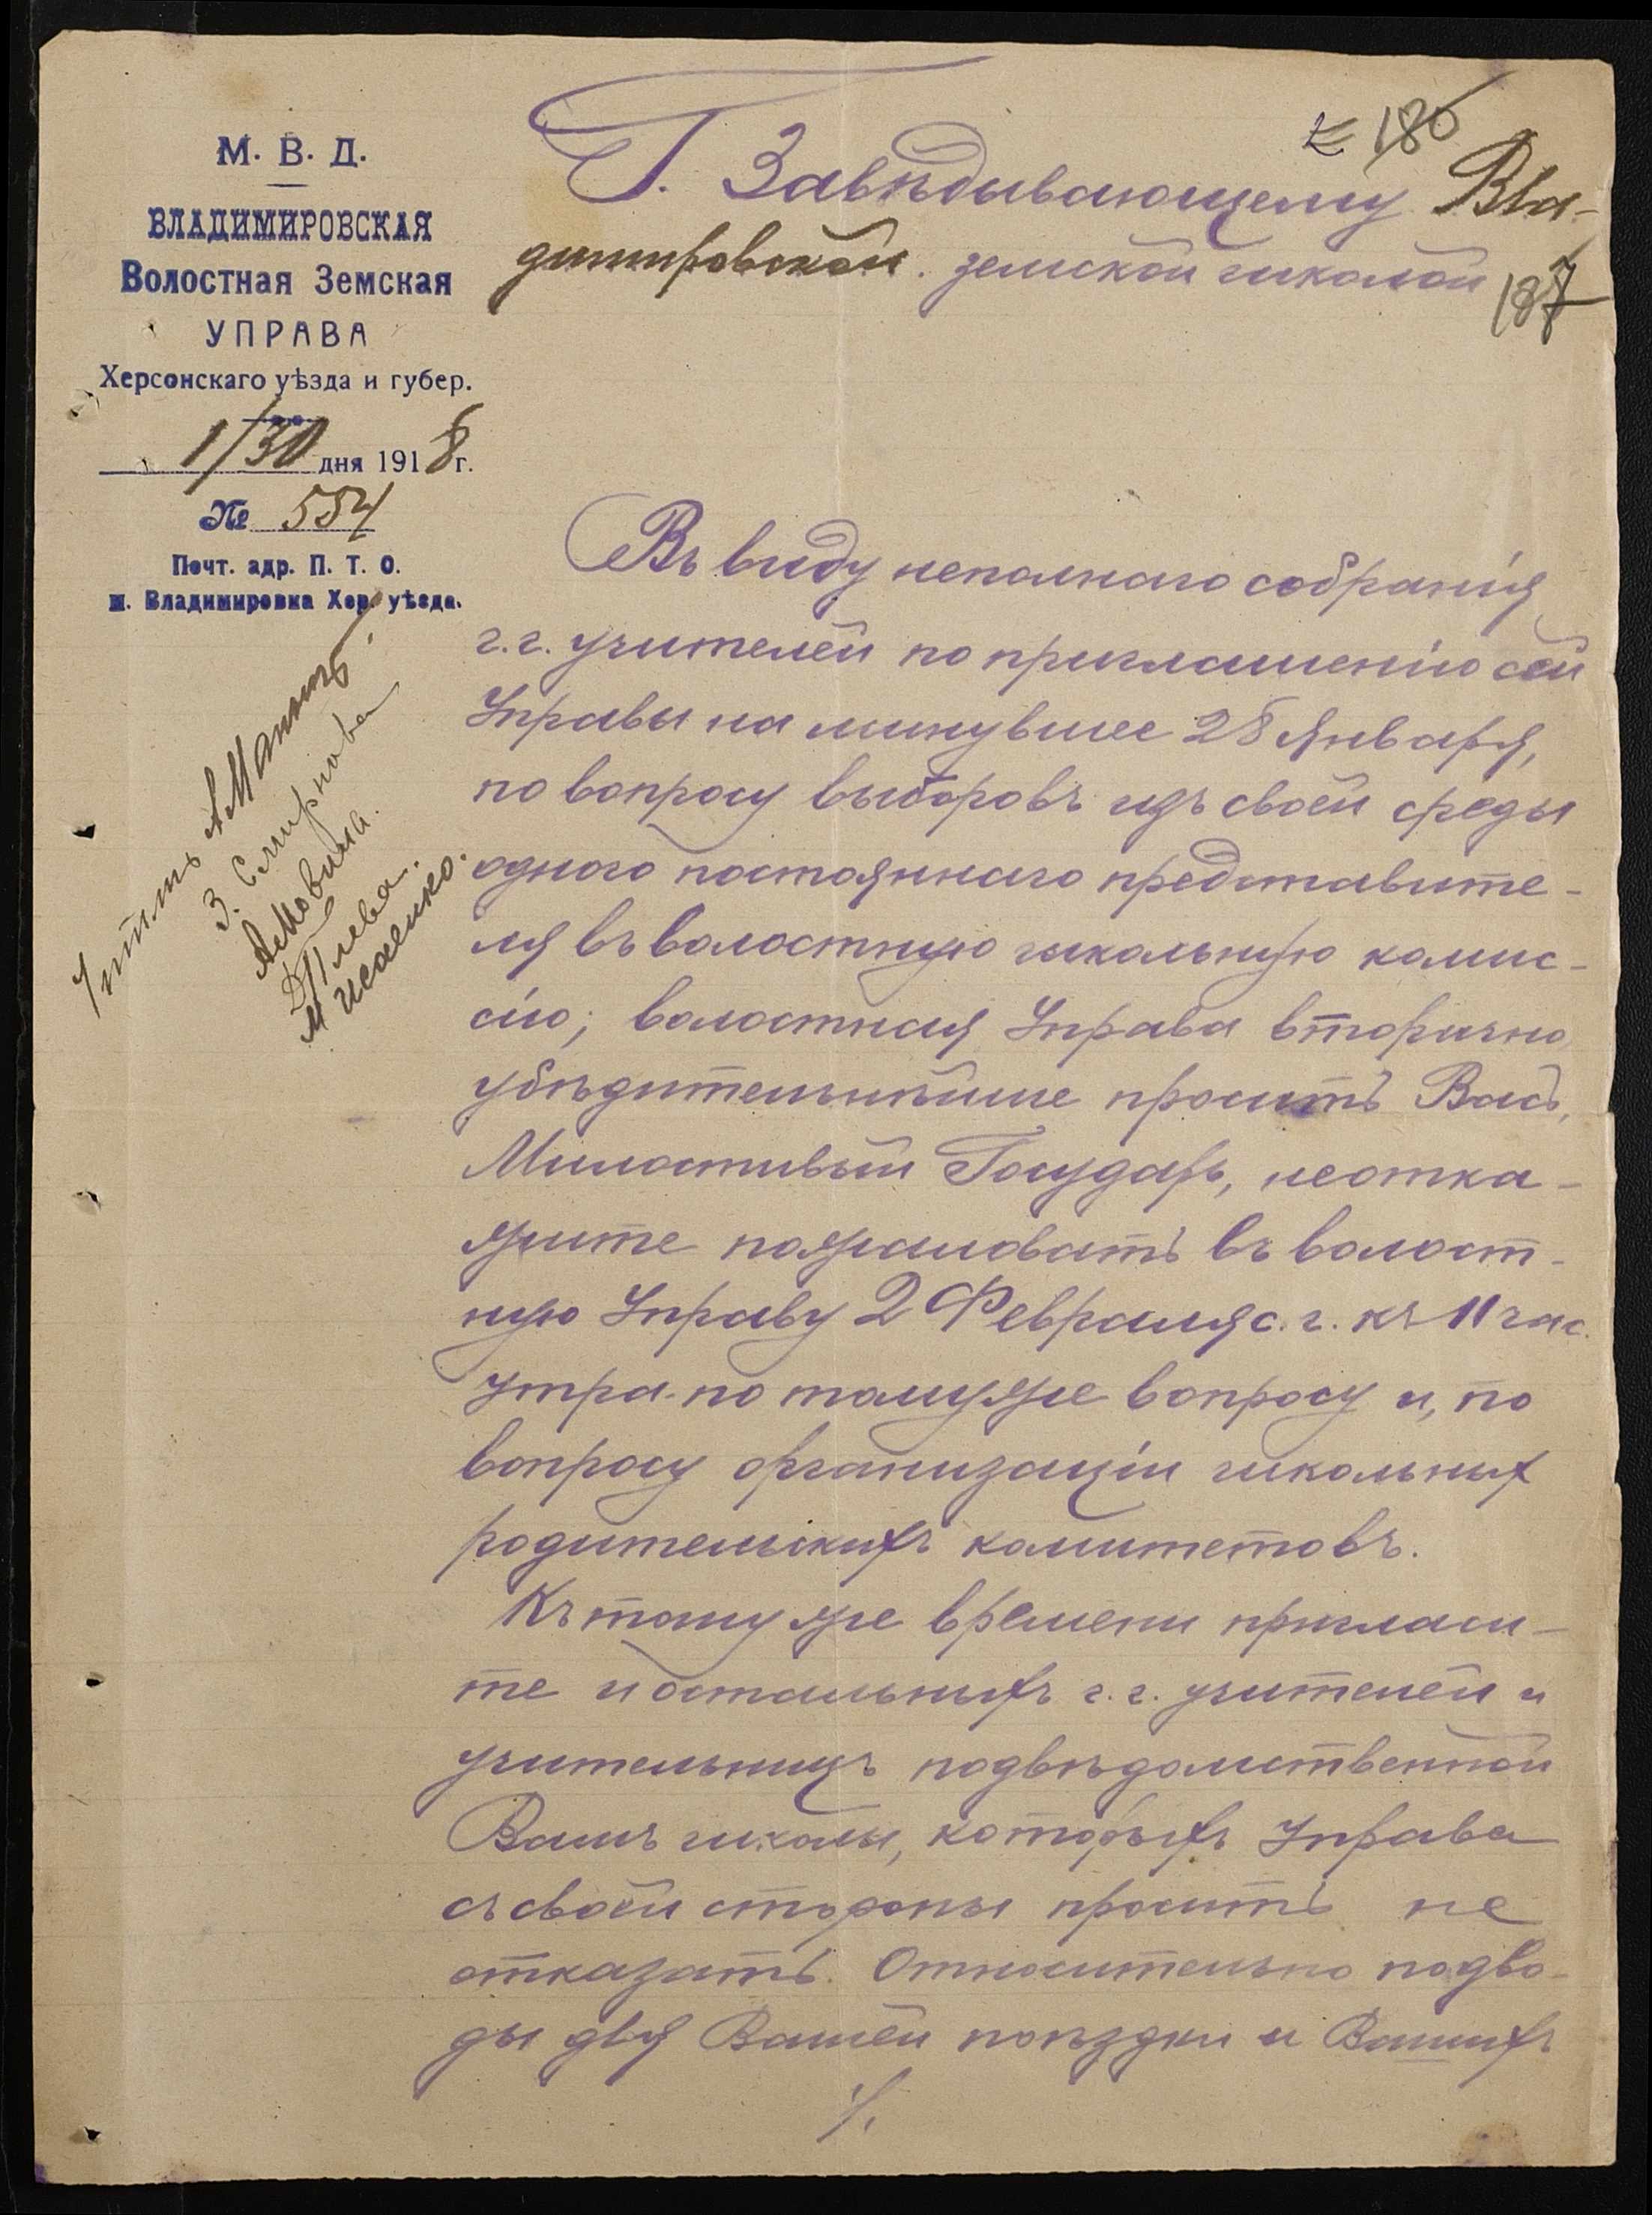 М. В. Д.
ВЛАДИМИРОВСКАЯ
Волостная Земская
УПРАВА
Херсонскаго уѣзда и губер.
1/30 дня 1918 г.
№ 554
Почт. адр. П. Т. О.
м. Владимировка Хер. уѣзда.
186
Г. Завѣдывающему Вла-
димировской земской школой
187
Въ виду неполнаго собранія
г.г. учителей по приглашенію сей
Управы на минувшее 28 Января,
по вопросу выборовъ изъ своей среды
одного постояннаго представите-
ля въ волостную школьную комис-
сію; волостная Управа вторично
убѣдительнѣйше проситъ Васъ,
Милостивый Государь, неотка-
жите пожаловать въ волост-
ную Управу 2 Февраля с. г. къ 11 час.
утра по томуже вопросу и, по
вопросу организаціи школьных
родительскихъ комитетовъ.
Къ тому же времени пригласи-
те и остальныхъ г.г. учителей и
учительницъ подвѣдомственной
Вамъ школы, которыхъ Управа
съ своей стороны проситъ не
отказать. Относительно подво-
ды для Вашей поѣздки и Вашихъ
З. Смирнова
М Исаенко.